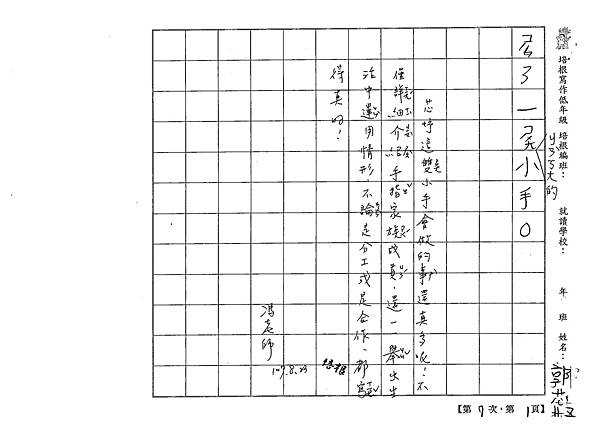 培根寫作低年級 培根編班： 就讀學校： 年 班 姓名：郭芯妤
ㄐㄧㄤ大的
了一 小手。
芯妤這雙小手會做的事還真多呢！不
僅詳細介紹手指家族成員，還一一舉出生
活中運用情形，不論是分工或是合作，都寫
得真好！
馮老師
107.8.23 培根
【第 7 次，第 1 頁】